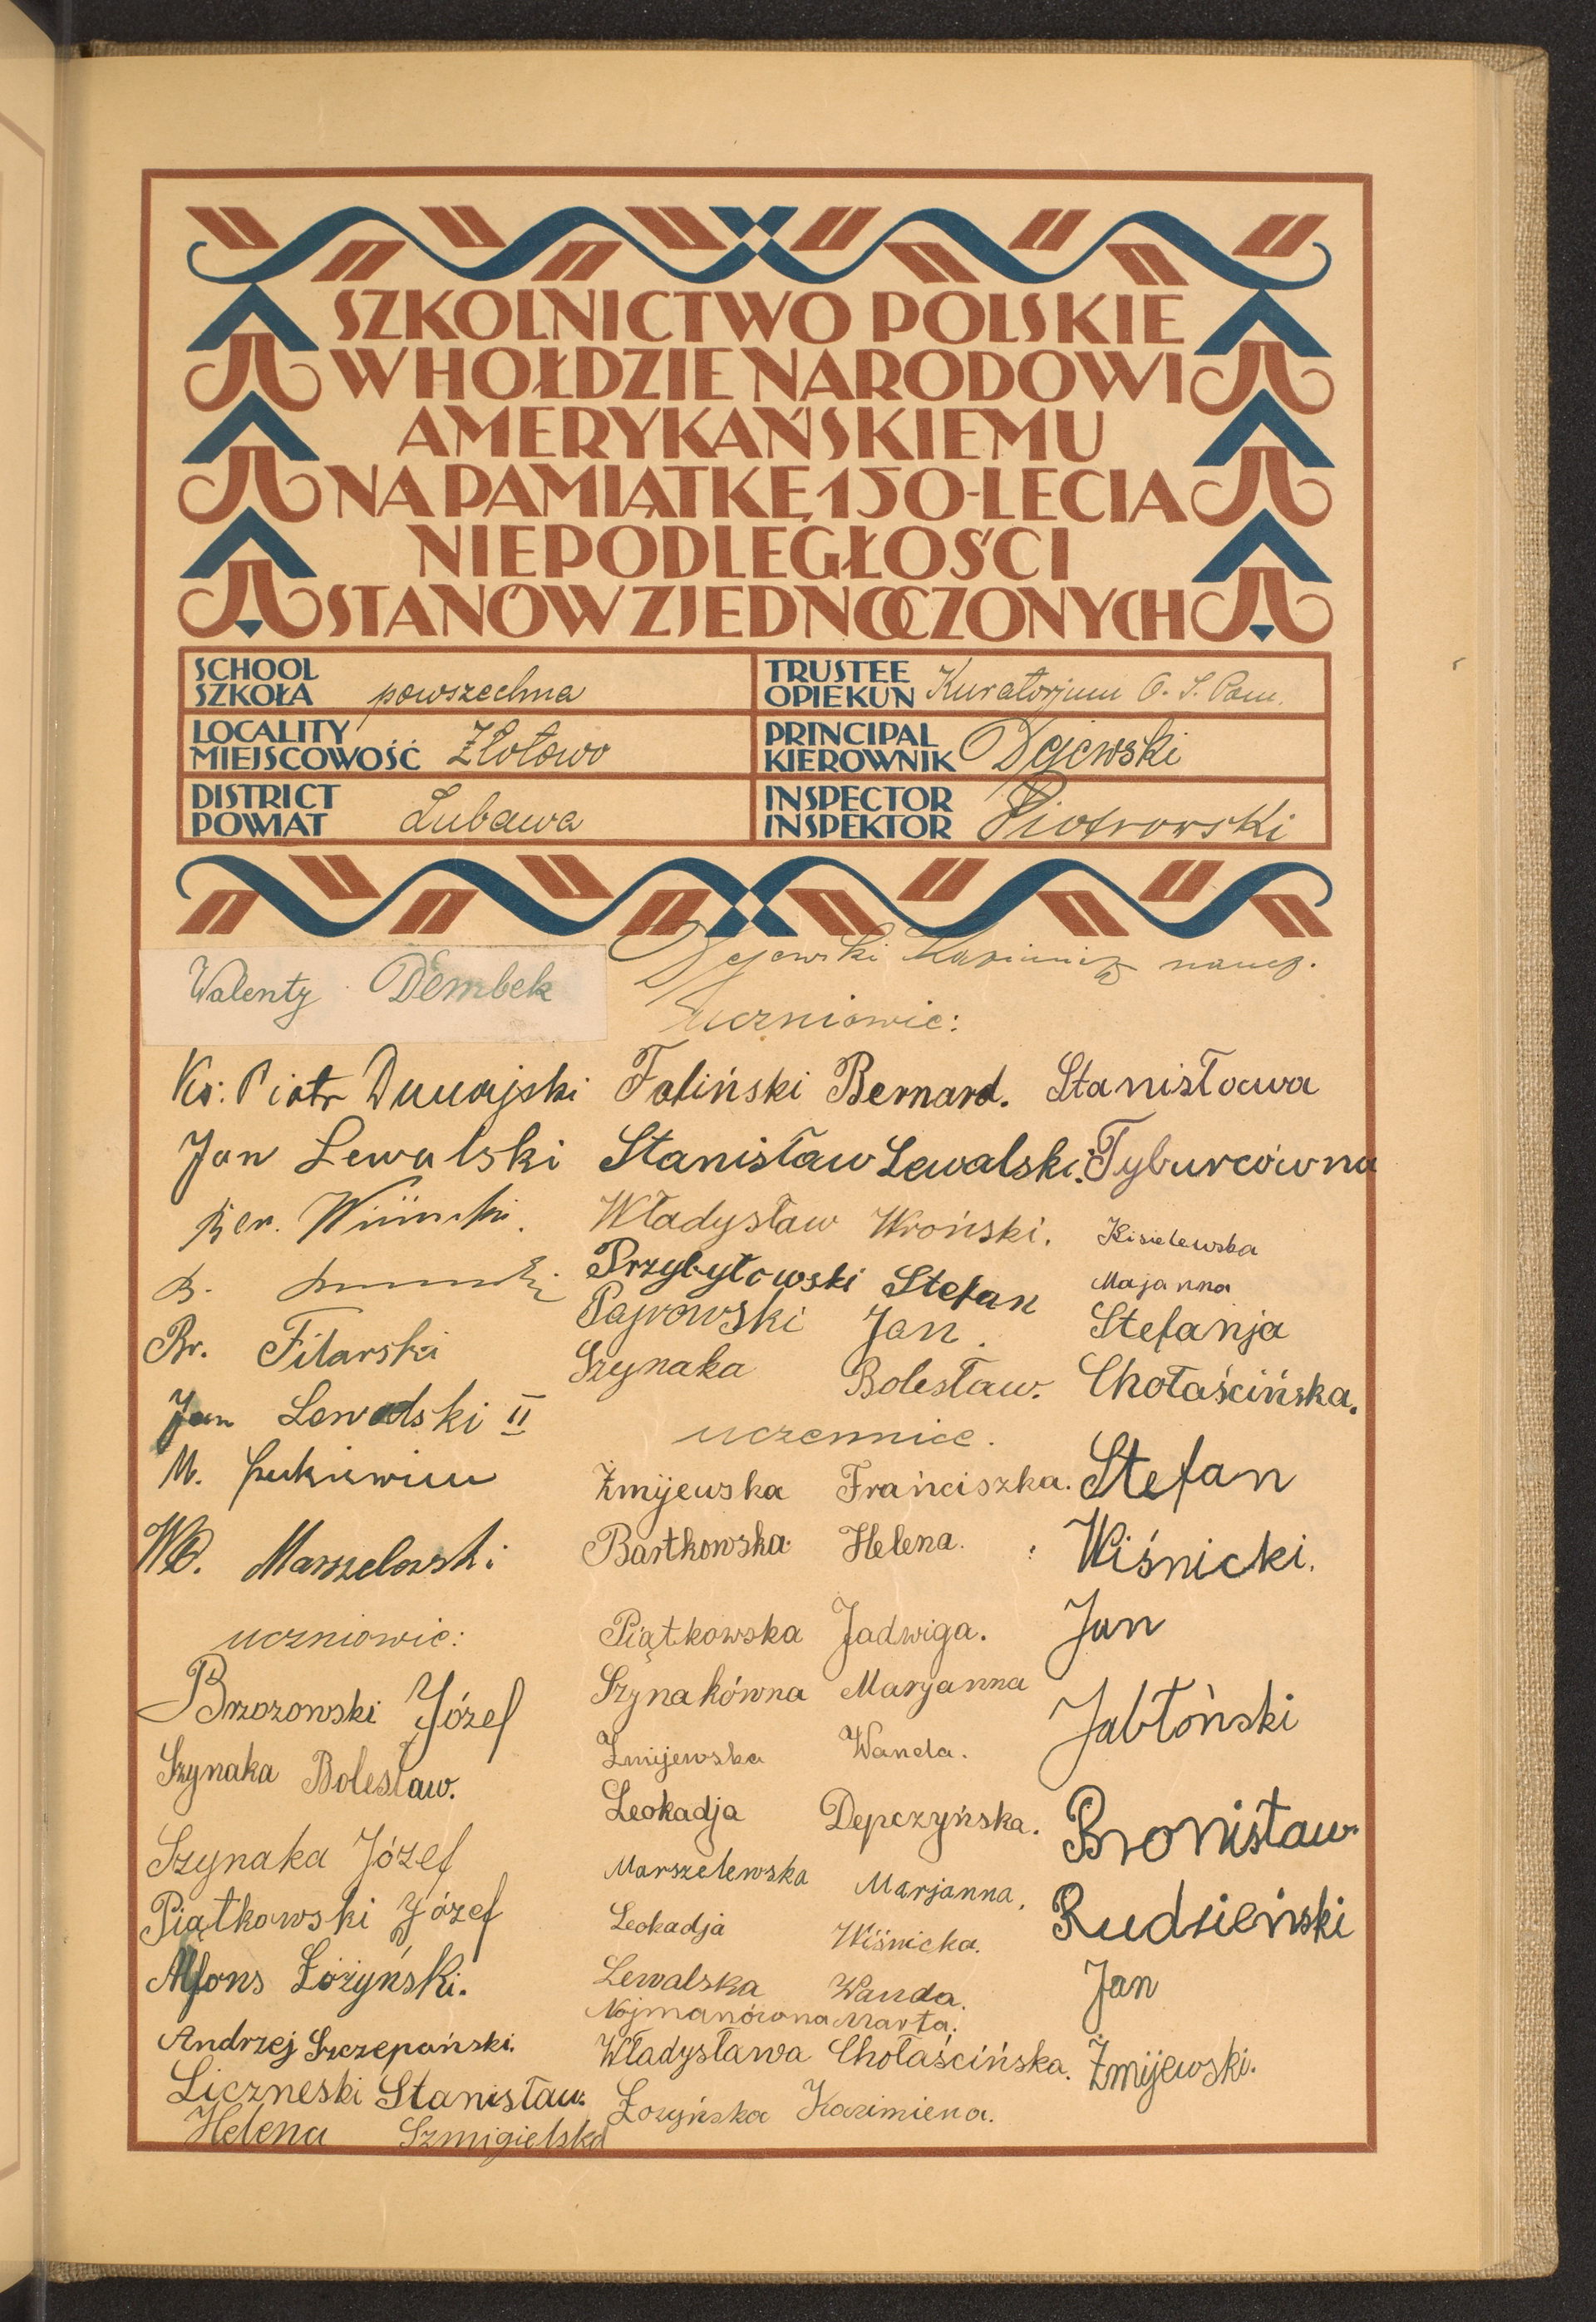 SZKOLNICTWO POLSKIE
W HOŁDZIE NARODOWI
AMERYKAŃSKIEMU
NA PAMIĄTKĘ 150-LECIA
NIEPODLEGŁOŚCI
STANÓW ZJEDNOCZONYCH
SCHOOL
SZKOŁA powszechna
TRUSTEE
OPIEKUN Kuratorjum O. S. Pom.
LOCALITY
MIEJSCOWOŚĆ Złotowo
PRINCIPAL
KIEROWNIK Dejewski
DISTRICT
POWIAT Lubawa
INSPECTOR
INSPEKTOR Piotrowski
Walenty Dembek
Ks: Piotr Dunajski
Jan Lewalski
B.
Br. Filarski
Jan Lewalski II
M.
Wł. Marszelewski
uczniowie:
Brzozowski Józef
Szynaka Bolesław.
Szynaka Józef
Piątkowski Józef
Alfons Łożyński.
Andrzej Szczepański.
Liczneski Stanisław.
Helena Szmigielska
Dejewski Kazimierz naucz.
uczniowie:
Foliński Bernard.
Stanisław Lewalski.
Władysław Wroński.
Przybyłowski Stefan
Pajrowski Jan.
Szynaka Bolesław.
uczennice.
Żmijewska Frańciszka.
Bartkowska Helena.
Piątkowska Jadwiga.
Szynakówna Maryanna
Żmijewska Wanda.
Leokadja Depczyńska.
Marszelewska Marjanna.
Leokadja Wiśnicka.
Lewalska Wanda.
Nojmanówna Marta.
Władysława Chołaścińska.
Łozyńska Kazimiera.
Stanisława
Tyburcówna
Kisielewska
Majanna
Stefanja
Chołaścińska.
Stefan
Wiśnicki.
Jan
Jabłoński
Bronisław
Rudzieński
Jan
Żmijewski.